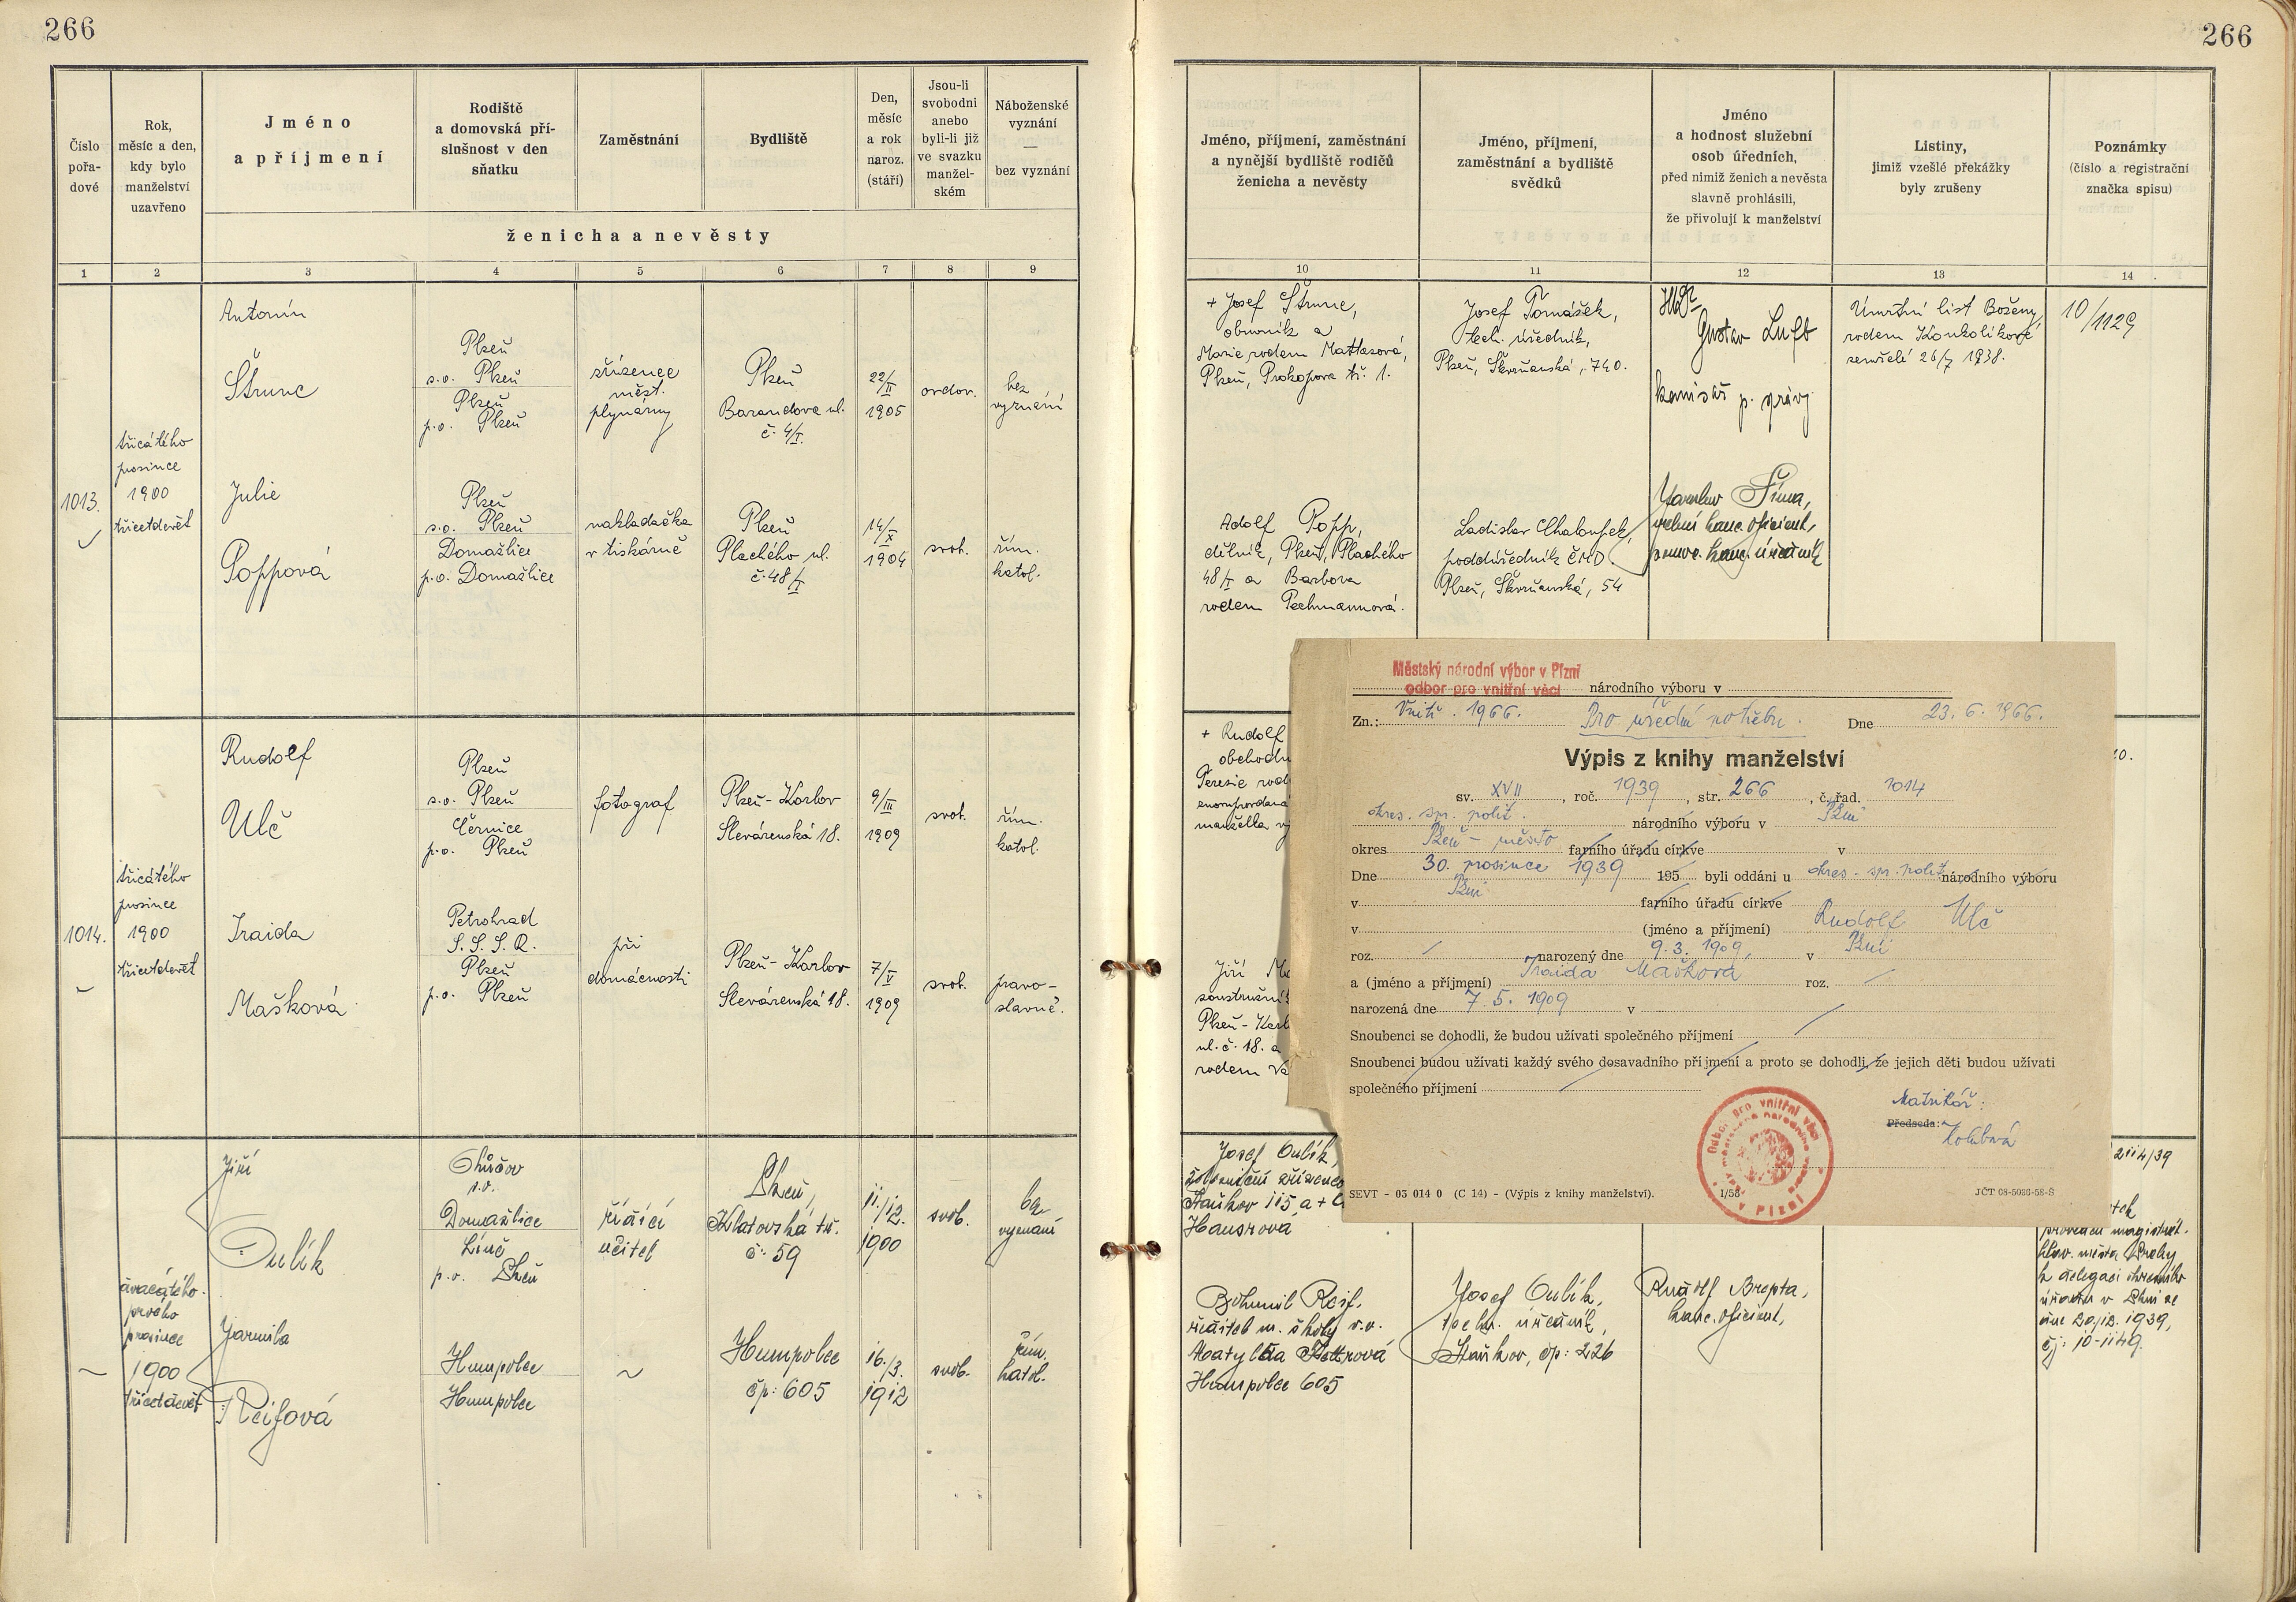 266
266
Číslo
pořa-
dové
Rok,
měsíc a den,
kdy bylo
manželství
uzavřeno
Jméno
a příjmení
Rodiště
a domovská pří-
slušnost v den
sňatku
Zaměstnání
Bydliště
Den,
měsíc
a rok
naroz.
(stáří)
Jsou-li
svobodni
anebo
byli-li již
ve svazku
manžel-
ském
Náboženské
vyznání
—
bez vyznání
ženicha a nevěsty
1 2 3 4 5 6 7 8 9
1013.
třicátého
prosince
1900
třicetdevět
Antonín
Štrunc
Plzeň
s.o. Plzeň
Plzeň
p.o. Plzeň
zřízenec
měst.
plynárny
Plzeň
Barandova ul.
č. 4/I.
22/II
1905
ovdov.
bez
vyznání
Julie
Poppová
Plzeň
s.o. Plzeň
Domažlice
p.o. Domažlice
nakladačka
v tiskárně
Plzeň
Plachého ul.
č. 48/I
14/X
1904
svob.
řím.
katol.
1014.
třicátého
prosince
1900
třicetdevět
Rudolf
Ulč
Plzeň
s.o. Plzeň
Černice
p.o. Plzeň
fotograf
Plzeň - Karlov
Slevárenská 18.
9/III
1909
svob.
řím.
katol.
Iraida
Mašková
Petrohrad
S.S.S.R.
Plzeň
p.o. Plzeň
při
domácnosti
Plzeň - Karlov
Slevárenská 18.
7/V
1909
svob.
pravo-
slavné.
dvacátého
prvého
prosince
1900
třicetdevět
Jiří
Oulík
s.o.
Domažlice
Líně
p.o. Plzeň
řídící
učitel
Plzeň,
Klatovská tř.
č: 59
11./12.
1900
svob.
bez
vyznání
Jarmila
Reifová
Humpolec
Humpolec
~
Humpolec
čp: 605
16./3.
1912
svob.
řím.
katol.
Jméno, příjmení, zaměstnání
a nynější bydliště rodičů
ženicha a nevěsty
Jméno, příjmení,
zaměstnání a bydliště
svědků
Jméno
a hodnost služební
osob úředních,
před nimiž ženich a nevěsta
slavně prohlásili,
že přivolují k manželství
Listiny,
jimiž vzešlé překážky
byly zrušeny
Poznámky
(číslo a registrační
značka spisu)
10 11 12 13 14
+ Josef Štrunc,
obuvník a
Marie rodem Mattasová,
Plzeň, Prokopova tř. 1.
Josef Tomášek,
tech. úředník,
Plzeň, Škvrňanská, 740.
Gustav Luft
komisař p. správy
Úmrtní list Boženy
rodem Koukolíkové
zemřelé 26/7 1938.
10/1129
Adolf Popp,
dělník, Plzeň, Plachého
48/I a Barbora
rodem Pechmannová.
Ladislav Chaloupek,
poddúředník ČMD.
Plzeň, Škvrňanská, 54
Jaroslav Šíma,
kanc. oficiant,
kanc. úředník
+ Rudolf
obchodn
Terezie rod
manžella
Jiří Ma
soustružní
Plzeň - Karl
ul. č. 18. a
rodem
Městský národní výbor v Plzni
odbor pro vnitřní věci národního výboru v
Zn.: Vnitř. 1966. Pro úřední potřebu. Dne 23. 6. 1966.
Výpis z knihy manželství
sv. XVII, roč. 1939, str. 266, č. řad. 1014
okres. spr. polit. národního výboru v Plzni
okres Plzeň - město farního úřadu církve v
Dne 30. prosince 1939 195 byli oddáni u okres. spr. polit. národního výboru
v Plzni farního úřadu církve
v (jméno a příjmení) Rudolf Ulč
roz. / narozený dne 9. 3. 1909, v Plzni
a (jméno a příjmení) Iraida Mašková roz. /
narozená dne 7. 5. 1909 v
Snoubenci se dohodli, že budou užívati společného příjmení
Snoubenci budou užívati každý svého dosavadního příjmení a proto se dohodli, že jejich děti budou užívati
společného příjmení
Matrikář:
Předseda:
Odbor pro vnitřní věci
městského národního
v Plzni
SEVT - 03 014 0 (C 14) - (Výpis z knihy manželství). 1/58 JČT 08-5036-58-Š
Josef Oulík,
Staňkov 115, a +
Hausrová
Bohumil Reif,
ředitel m. školy v.v.
Humpolec 605
Josef Oulík,
techn. úředník,
Staňkov, čp: 226
Rudolf Brepta,
kanc. oficiant,
2114/39
proveden magistrát.
hlav. města Prahy
z delegaci okresního
úřadu v Plzni ze
dne 20./12. 1939,
čj: 10-1149.